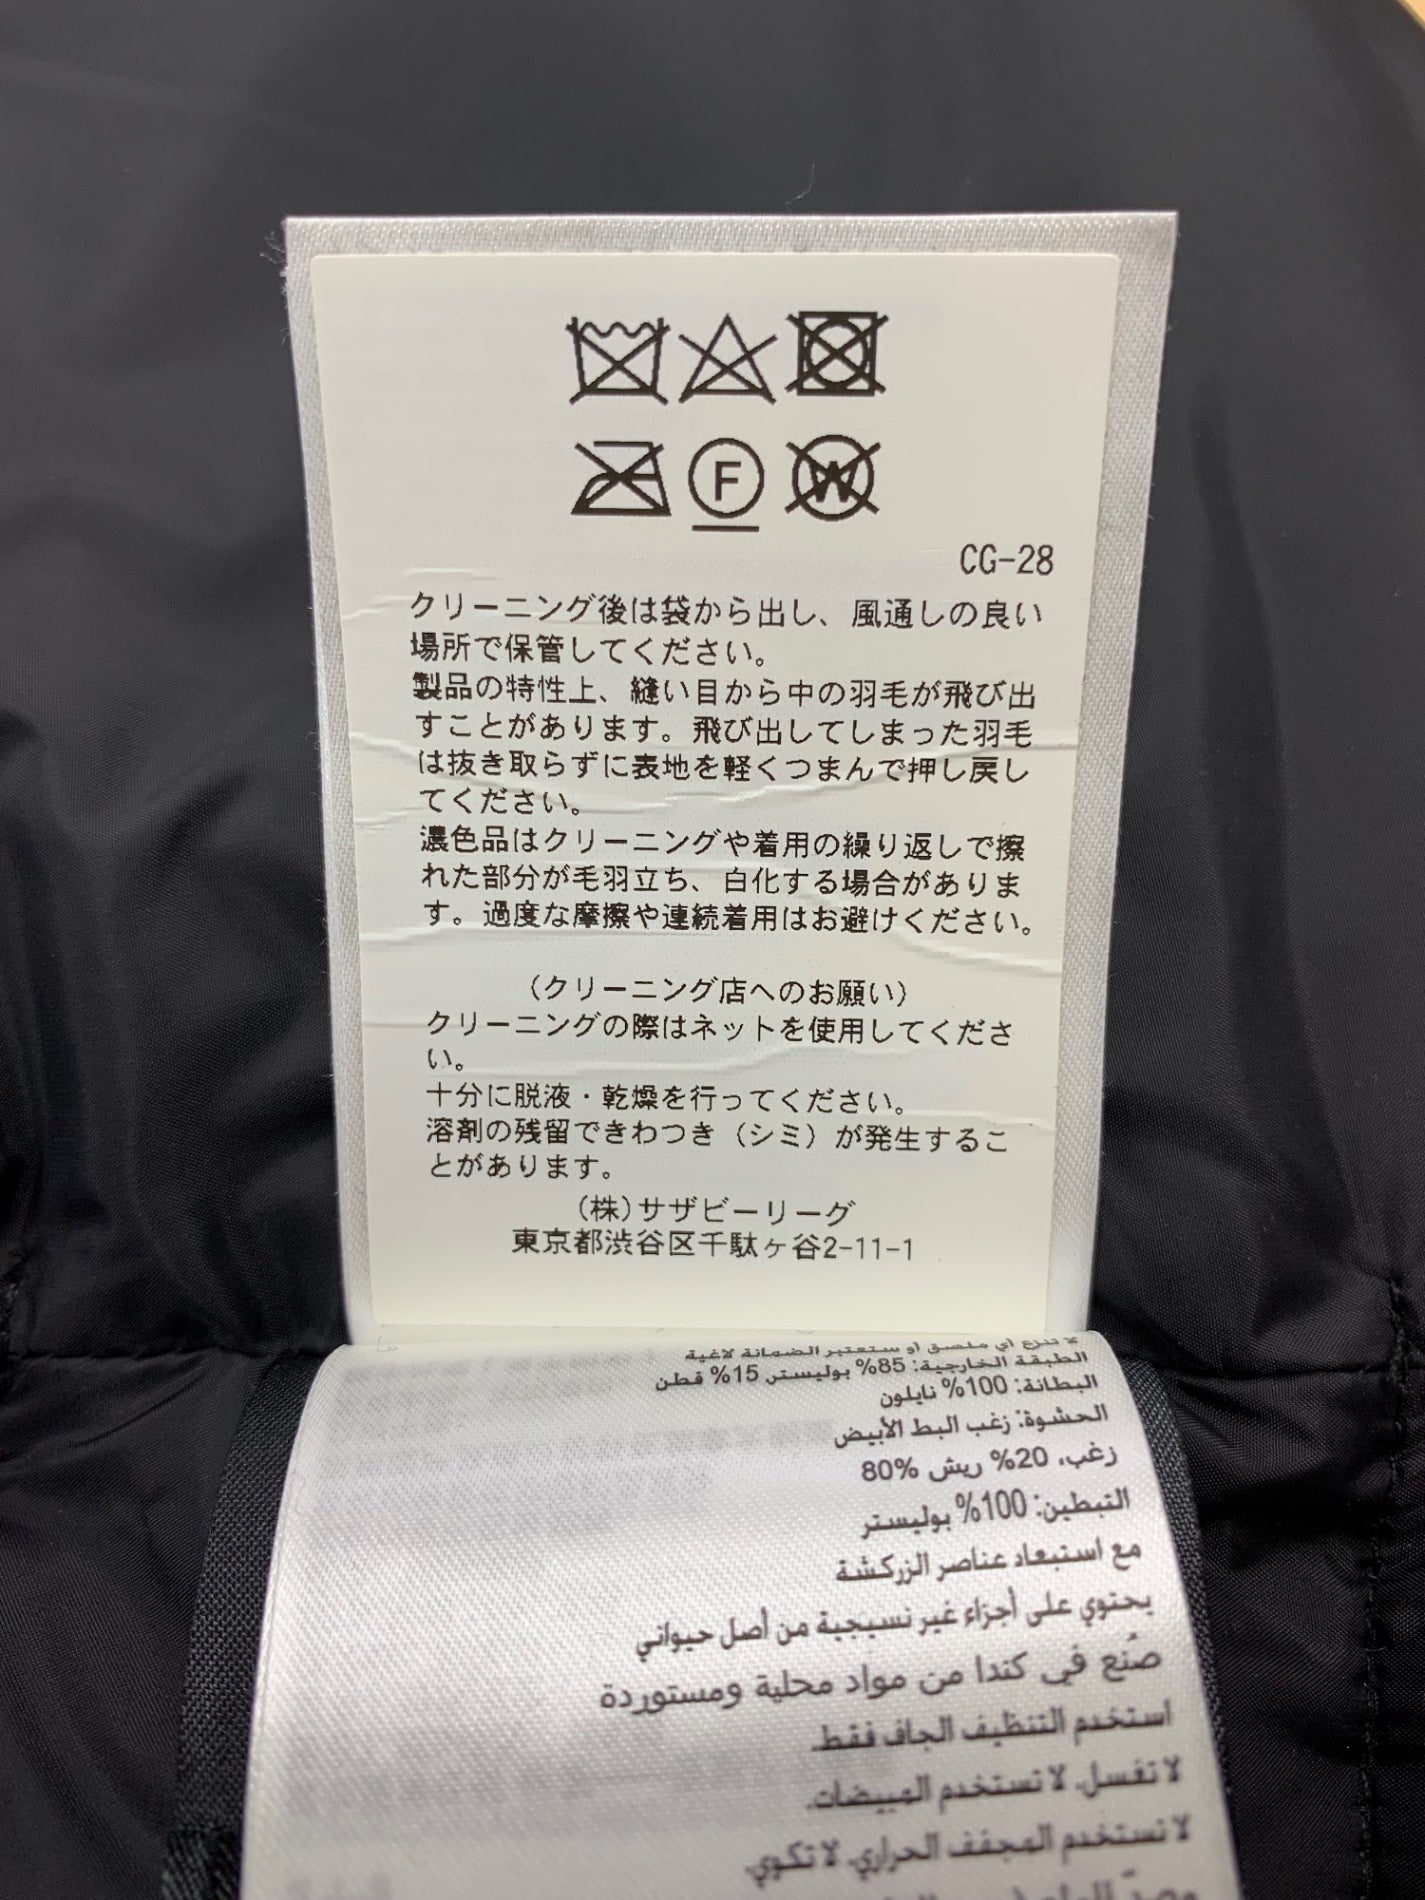 F
W
CG-28
クリーニング後は袋から出し、風通しの良い
場所で保管してください。
製品の特性上、縫い目から中の羽毛が飛び出
すことがあります。飛び出してしまった羽毛
は抜き取らずに表地を軽くつまんで押し戻し
てください。
濃色品はクリーニングや着用の繰り返しで擦
れた部分が毛羽立ち、白化する場合がありま
す。過度な摩擦や連続着用はお避けください。
(クリーニング店へのお願い)
クリーニングの際はネットを使用してくださ
い。
十分に脱液・乾燥を行ってください。
溶剤の残留できわつき(シミ)が発生するこ
とがあります。
(株)サザビーリーグ
東京都渋谷区千駄ヶ谷2-11-1
لا تنزع أي ملصق أو ستعتبر الضمانة لاغية
الطبقة الخارجية: 85% بوليستر 15% قطن
البطانة: 100% نايلون
الحشوة: زغب البط الأبيض
زغب، 20% ريش 80%
التبطين: 100% بوليستر
مع استبعاد عناصر الزركشة
يحتوي على أجزاء غير نسيجية من أصل حيواني
صُنع في كندا من مواد محلية ومستوردة
استخدم التنظيف الجاف فقط.
لا تغسل. لا تستخدم المبيضات.
لا تستخدم المجفف الحراري. لا تكوي.